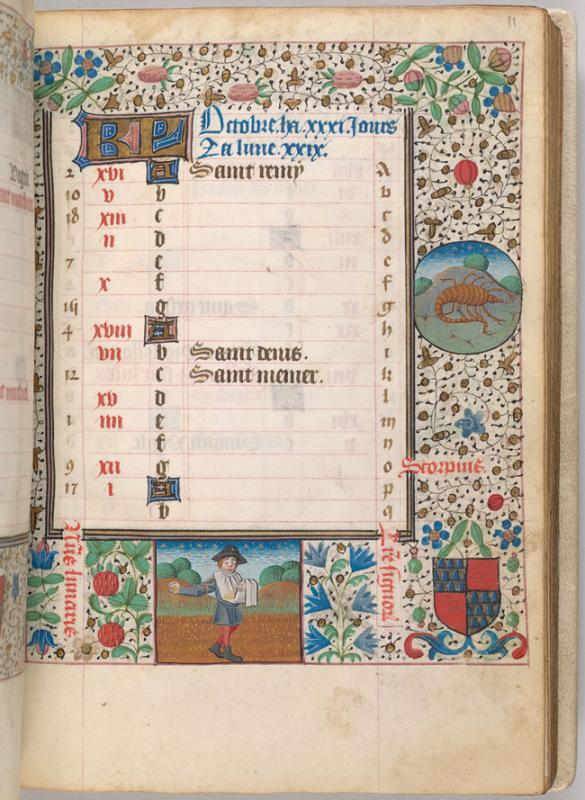 11
KL Octobre. ha .xxxi. Jours
La lune .xxix.
2 xvi A Saint remy A
10 v b b
18 xiii c c
ii d d
7 e e
x f f
g g
4 xviii A h
vii b Saint denis. i
12 c Saint menier. k
xv d l
1 iiii e m
f n
9 xii g o
17 i A p
b q
Scorpius.